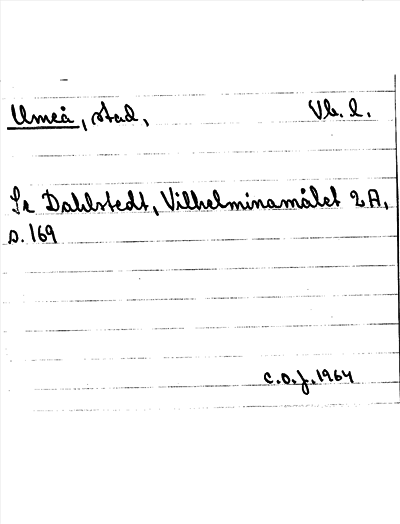 Umeå, stad, Vb. l.
Se Dahlstedt, Vilhelminamålet 2A,
s. 169
C.O.J. 1964